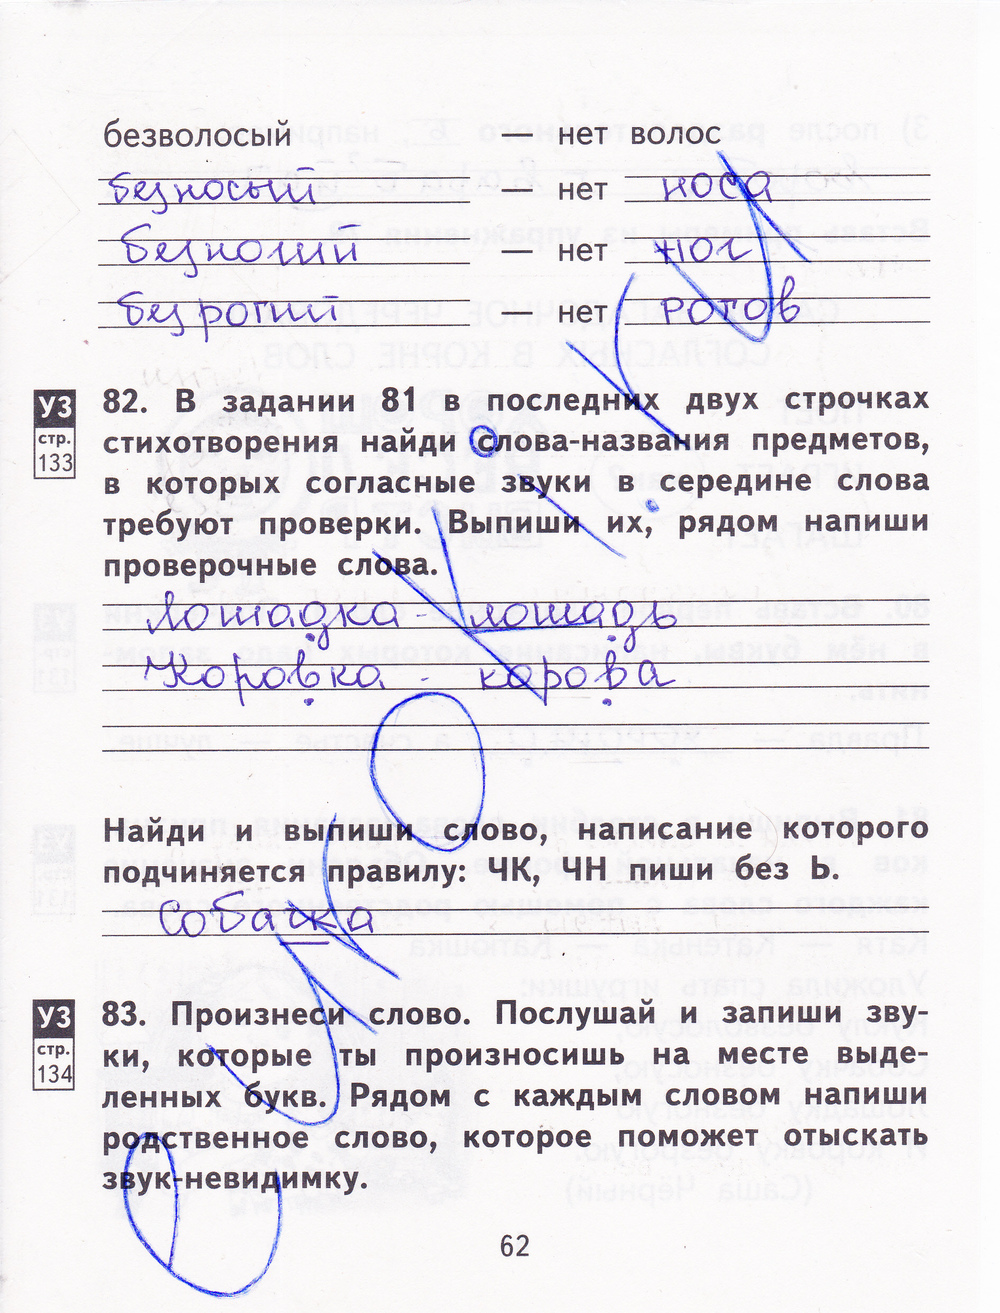 безволосый — нет волос
безносый — нет носа
безногий — нет ног
безрогий — нет рогов
УЗ
стр.
133
82. В задании 81 в последних двух строчках
стихотворения найди слова-названия предметов,
в которых согласные звуки в середине слова
требуют проверки. Выпиши их, рядом напиши
проверочные слова.
Лошадка - лошадь
Коровка - корова
Найди и выпиши слово, написание которого
подчиняется правилу: ЧК, ЧН пиши без Ь.
Собачка
УЗ
стр.
134
83. Произнеси слово. Послушай и запиши зву-
ки, которые ты произносишь на месте выде-
ленных букв. Рядом с каждым словом напиши
родственное слово, которое поможет отыскать
звук-невидимку.
62